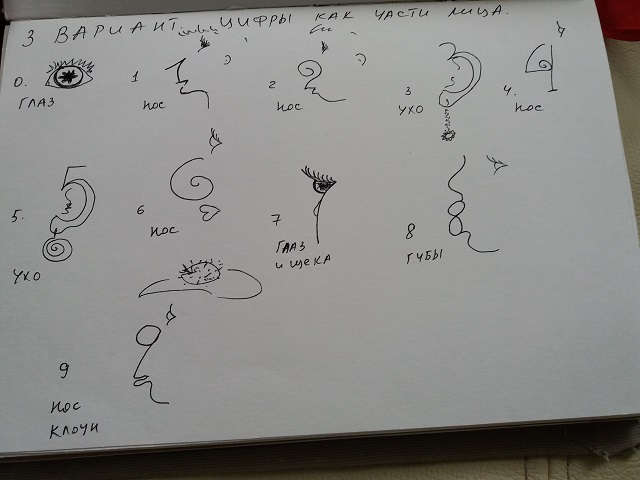 3 ВАРИАНТ. ЦИФРЫ КАК ЧАСТИ ЛИЦА.
0. ГЛАЗ
1 НОС
2 НОС
3 УХО
4. НОС
5. УХО
6 НОС
7 ГЛАЗ
И ЩЕКА
8 ГУБЫ
9
НОС
КЛОУН